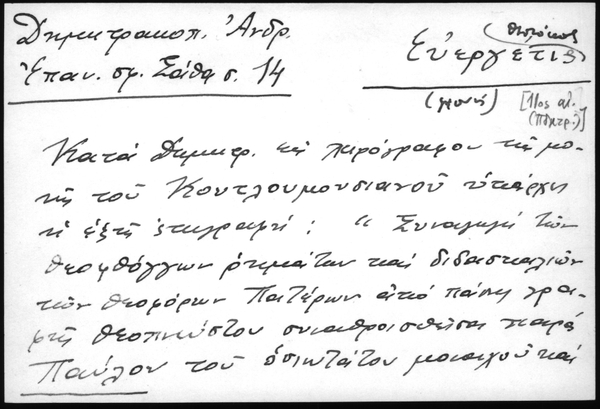 Δημητρακοπ. Ἀνδρ.
Ἐπαν. σφ. Σάθα σ. 14
Θεοτόκος
Εὐεργέτις
(μονή)
[11ος αἰ.
(Πόλη)]
Κατά Δημητρ. εἰς χειρόγραφον τῆς μο-
νῆς τοῦ Κουτλουμουσιανοῦ ὑπάρχει
ἡ ἑξῆς ἐπιγραφή: "Συναγωγή τῶν
θεοφθόγγων ῥημάτων καί διδασκαλιῶν
τῶν θεοφόρων Πατέρων ἀπό πάσης γρα-
φῆς θεοπνεύστου συναθροισθεῖσα παρά
Παύλου τοῦ ὁσιωτάτου μοναχοῦ καί